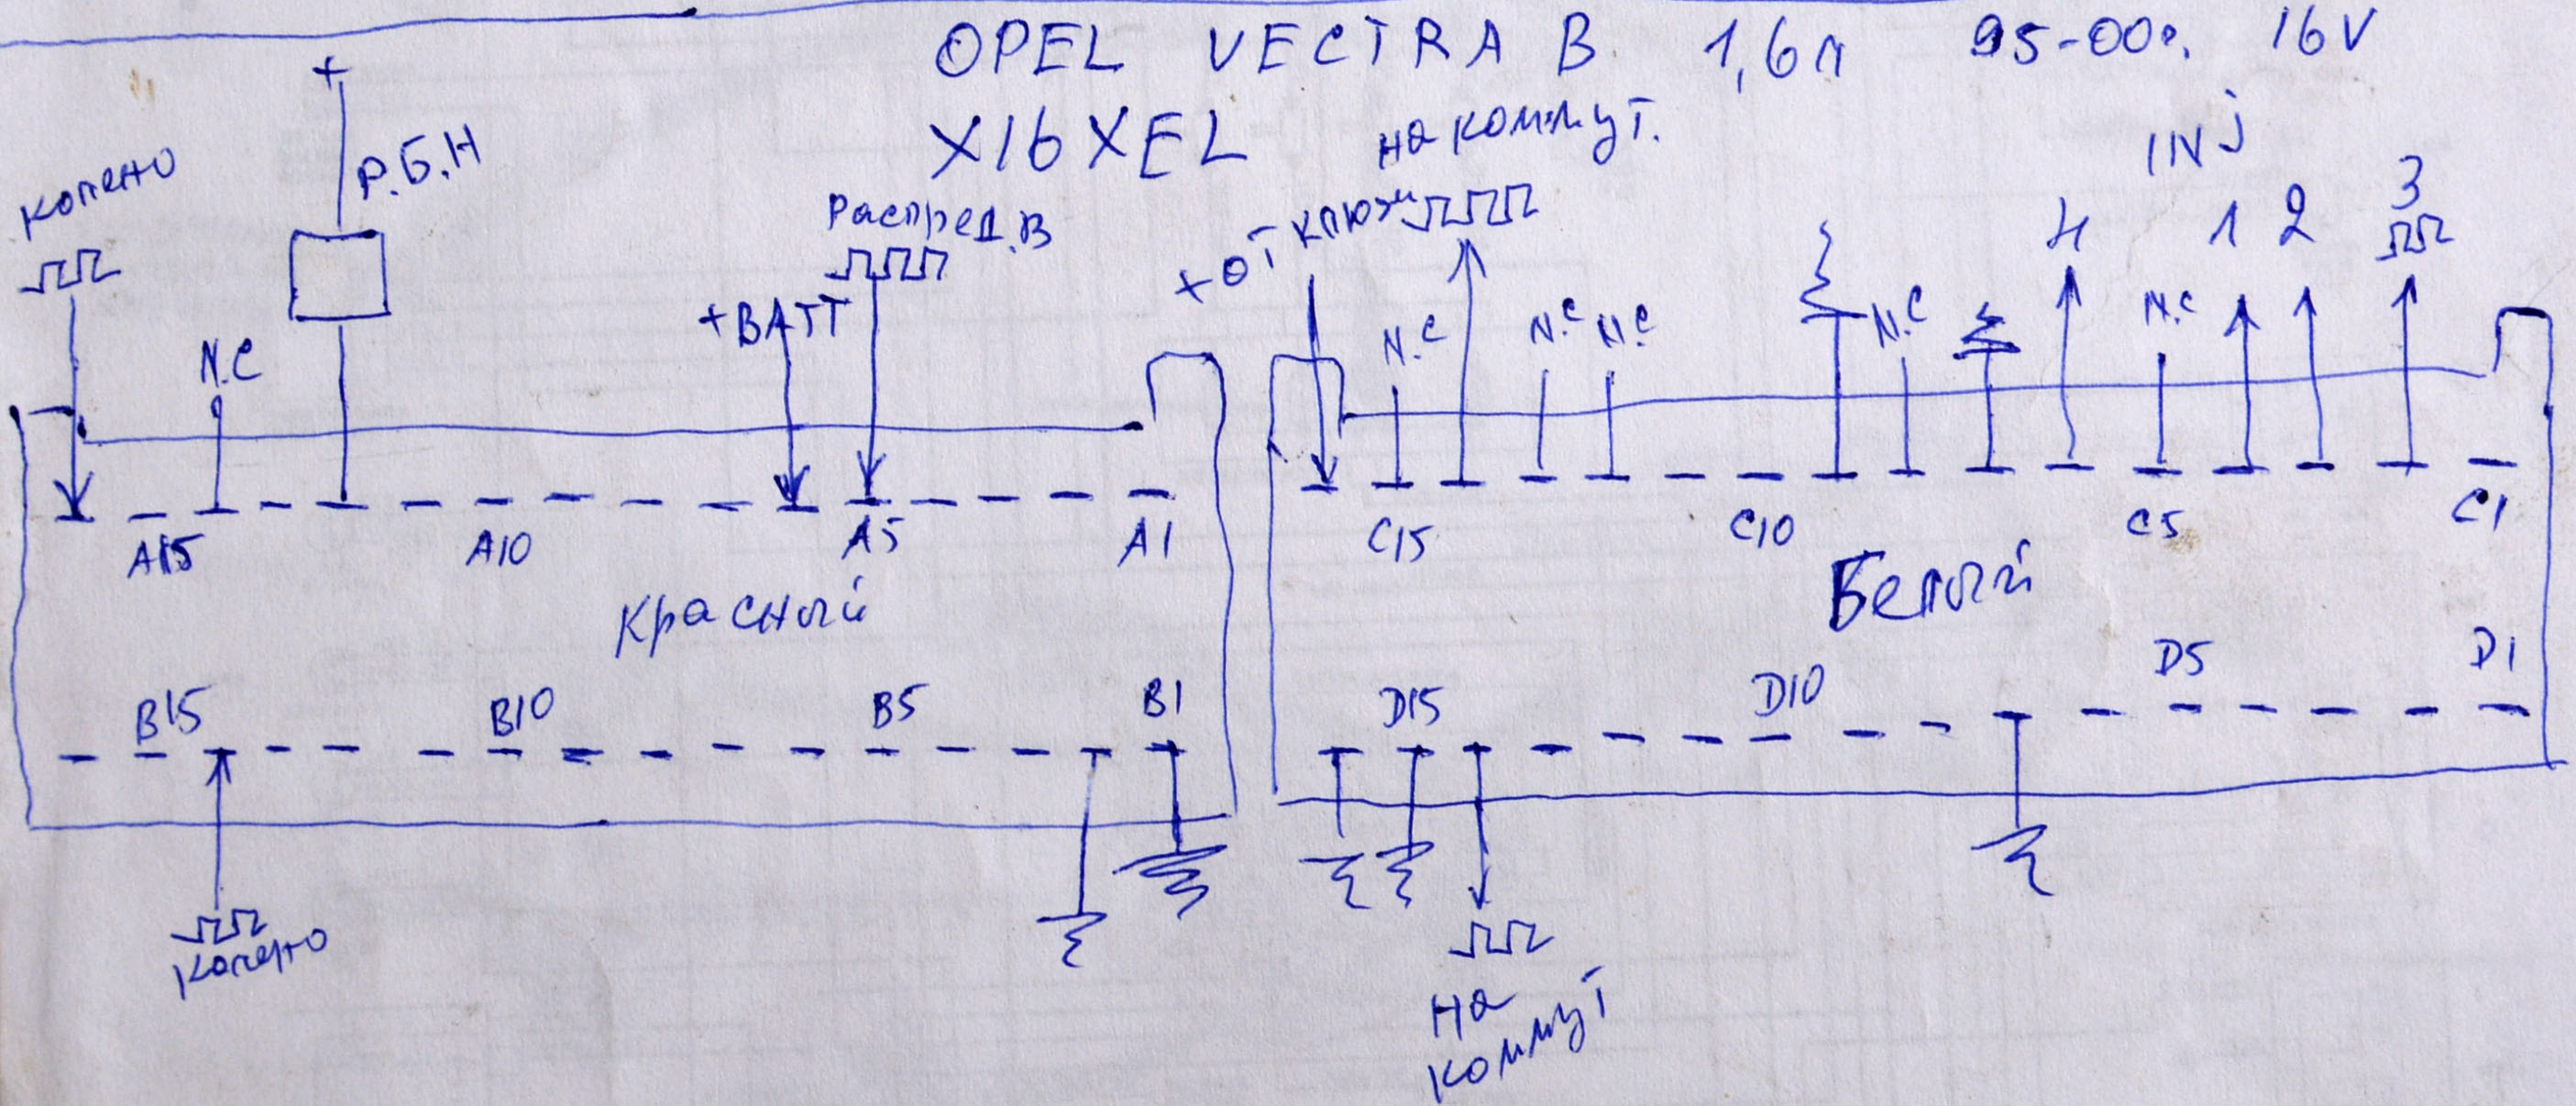 OPEL VECTRA B 1,6л 95-00г. 16V
X16XEL
на коммут.
INJ
колено
+
Р.Б.Н
Распред.В
+ от ключ
4 1 2 3
+BATT
N.C
N.C N.C N.C N.C N.C
A15 A10 A5 A1
C15 C10 C5 C1
Красный
Белый
B15 B10 B5 B1
D15 D10 D5 D1
колено
на
коммут